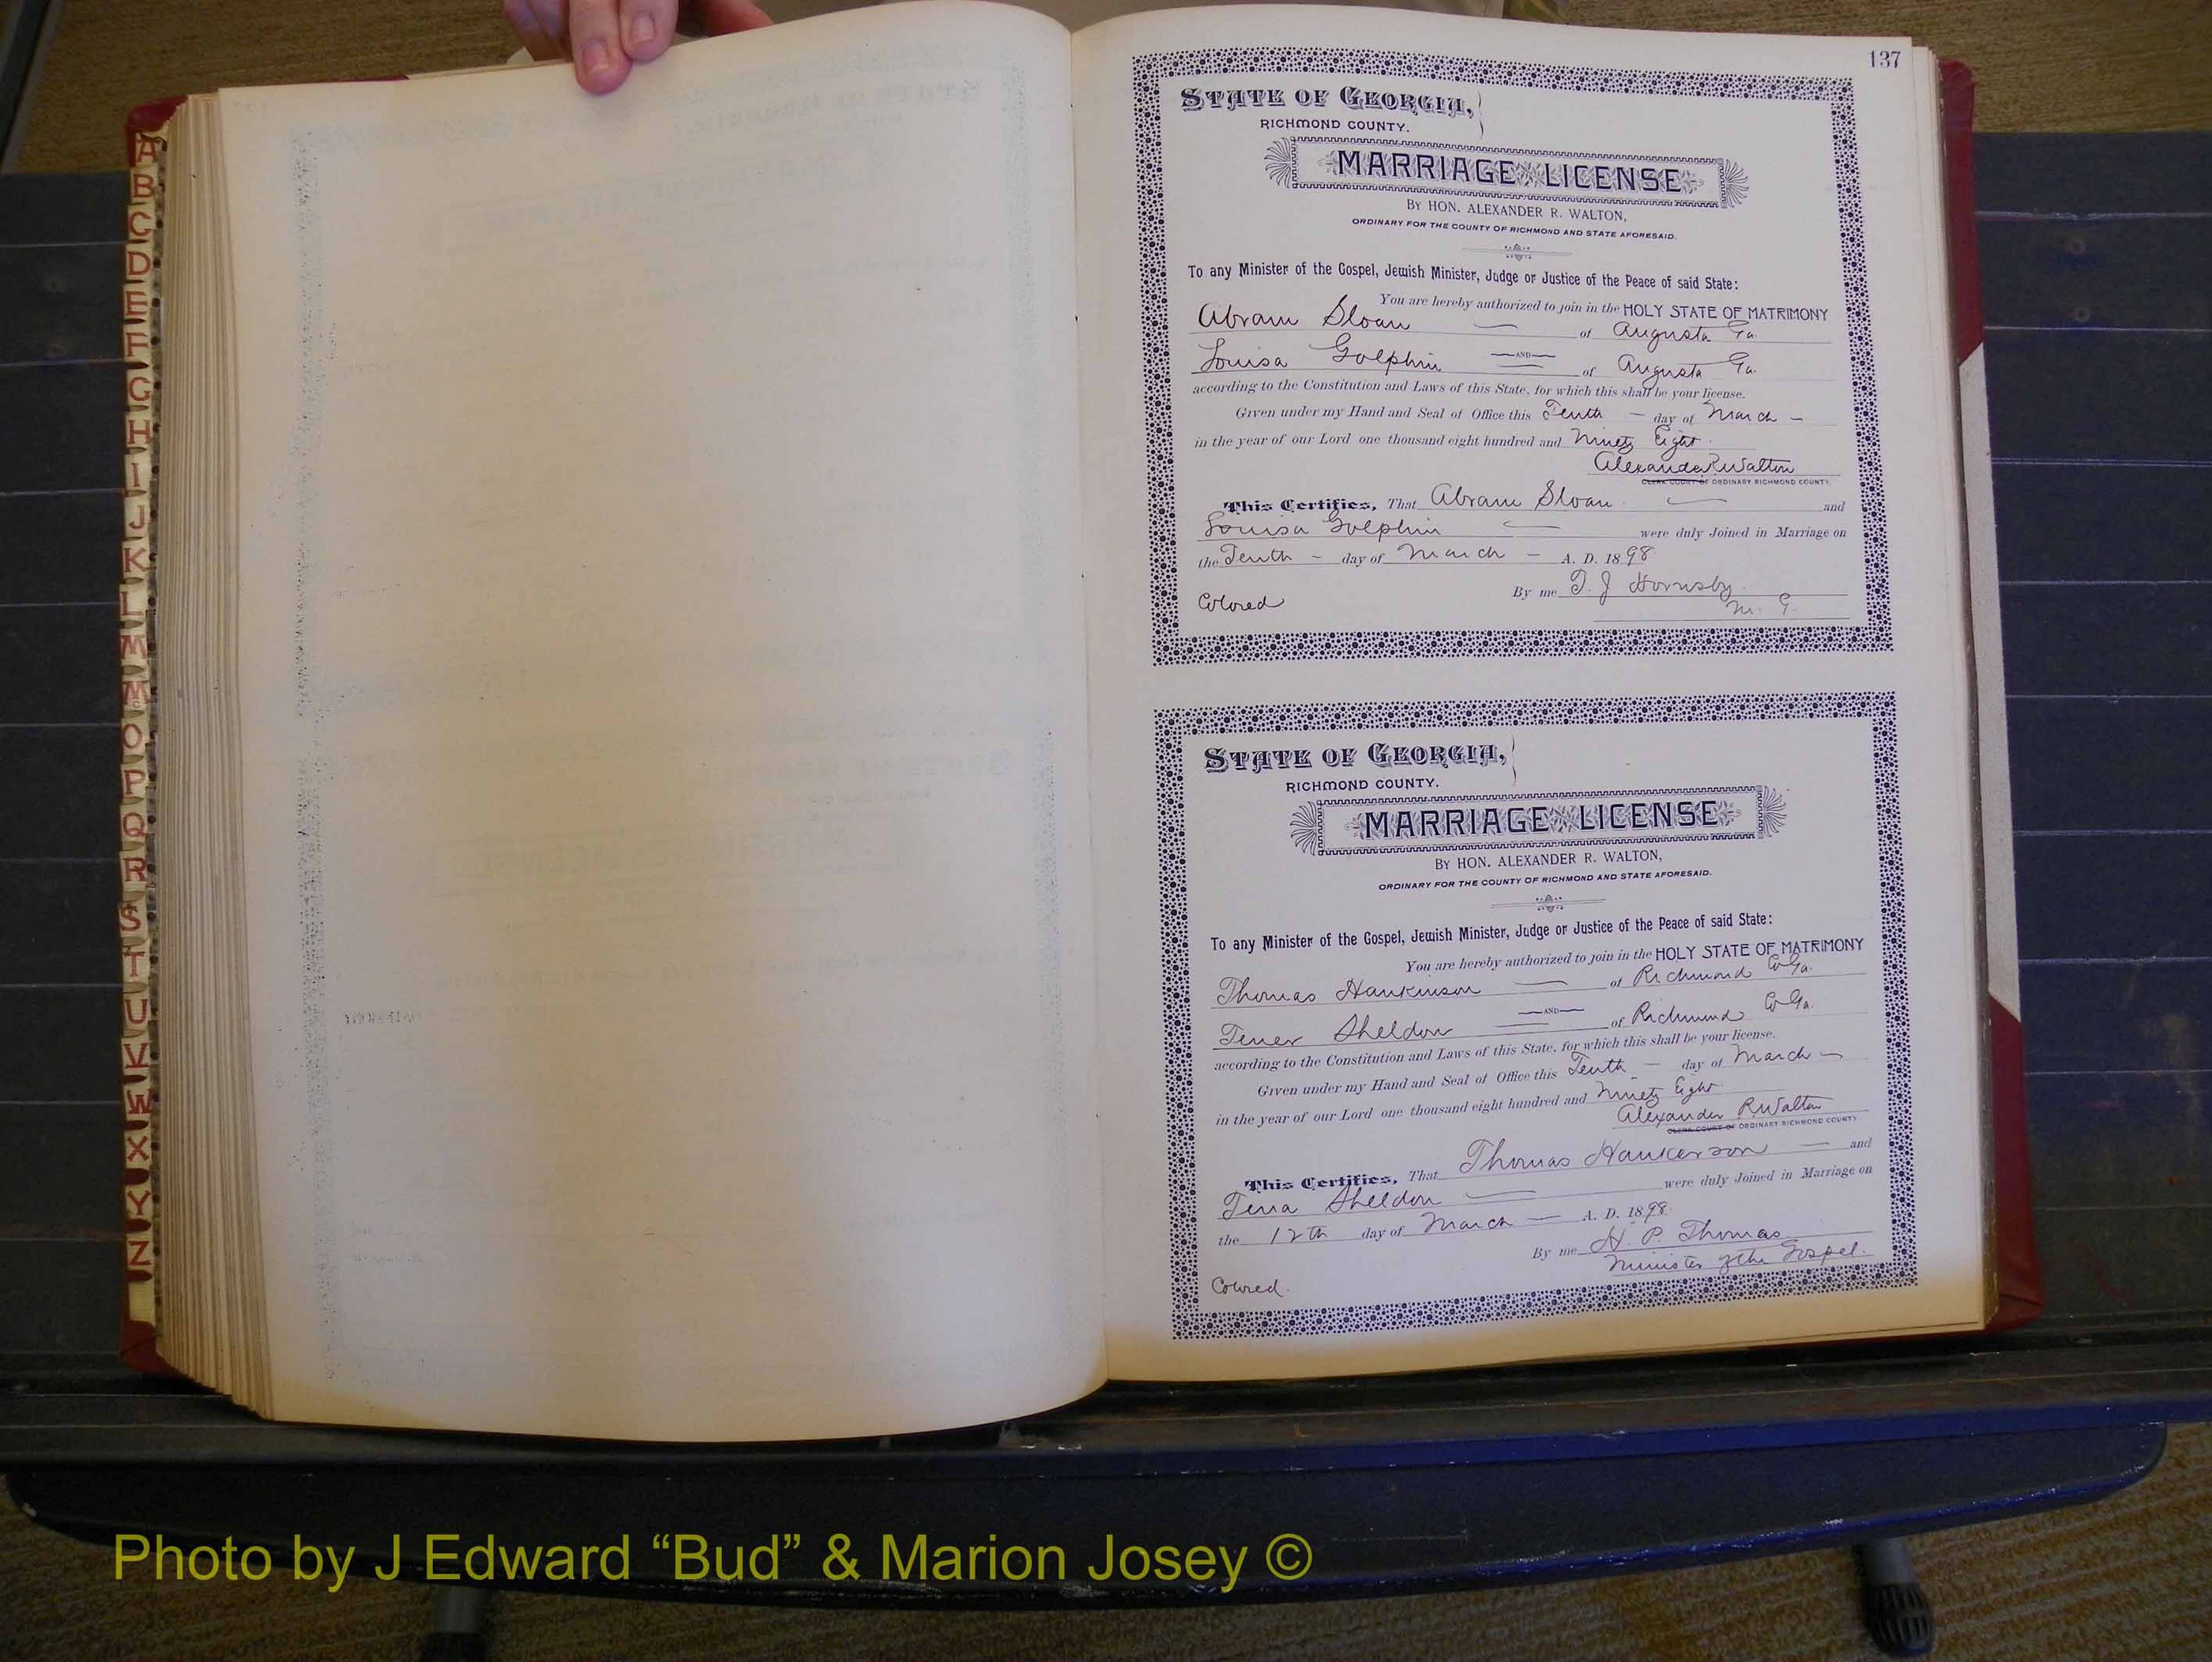 A
B
C
D
E
F
G
H
I
J
K
L
M
Mc
O
P
Q
R
S
T
U
V
W
X
Y
Z
137
STATE OF GEORGIA,
RICHMOND COUNTY.
MARRIAGE LICENSE
By HON. ALEXANDER R. WALTON,
ORDINARY FOR THE COUNTY OF RICHMOND AND STATE AFORESAID.
To any Minister of the Gospel, Jewish Minister, Judge or Justice of the Peace of said State:
You are hereby authorized to join in the HOLY STATE OF MATRIMONY
Abram Sloan — of Augusta Ga.
—AND—
Louisa Golphin = of Augusta Ga.
according to the Constitution and Laws of this State, for which this shall be your license.
Given under my Hand and Seal of Office this Tenth — day of March —
in the year of our Lord one thousand eight hundred and Ninety Eight.
Alexander R Walton
CLERK COURT OF ORDINARY RICHMOND COUNTY.
This Certifies, That Abram Sloan — and
Louisa Golphin — were duly Joined in Marriage on
the Tenth — day of March — A. D. 1898
By me T. J Hornsby
M. G.
Colored
STATE OF GEORGIA,
RICHMOND COUNTY.
MARRIAGE LICENSE
By HON. ALEXANDER R. WALTON,
ORDINARY FOR THE COUNTY OF RICHMOND AND STATE AFORESAID.
To any Minister of the Gospel, Jewish Minister, Judge or Justice of the Peace of said State:
You are hereby authorized to join in the HOLY STATE OF MATRIMONY
Thomas Hankinson — of Richmond Co Ga.
—AND—
Tener Sheldon = of Richmond Co Ga.
according to the Constitution and Laws of this State, for which this shall be your license.
Given under my Hand and Seal of Office this Tenth — day of March —
in the year of our Lord one thousand eight hundred and Ninety Eight.
Alexander R. Walton
CLERK COURT OF ORDINARY RICHMOND COUNTY
This Certifies, That Thomas Hankerson — and
Tena Sheldon — were duly Joined in Marriage on
the 12th day of March — A. D. 1898.
By me H. P. Thomas
Minister of the Gospel.
Colored.
Photo by J Edward “Bud” & Marion Josey ©